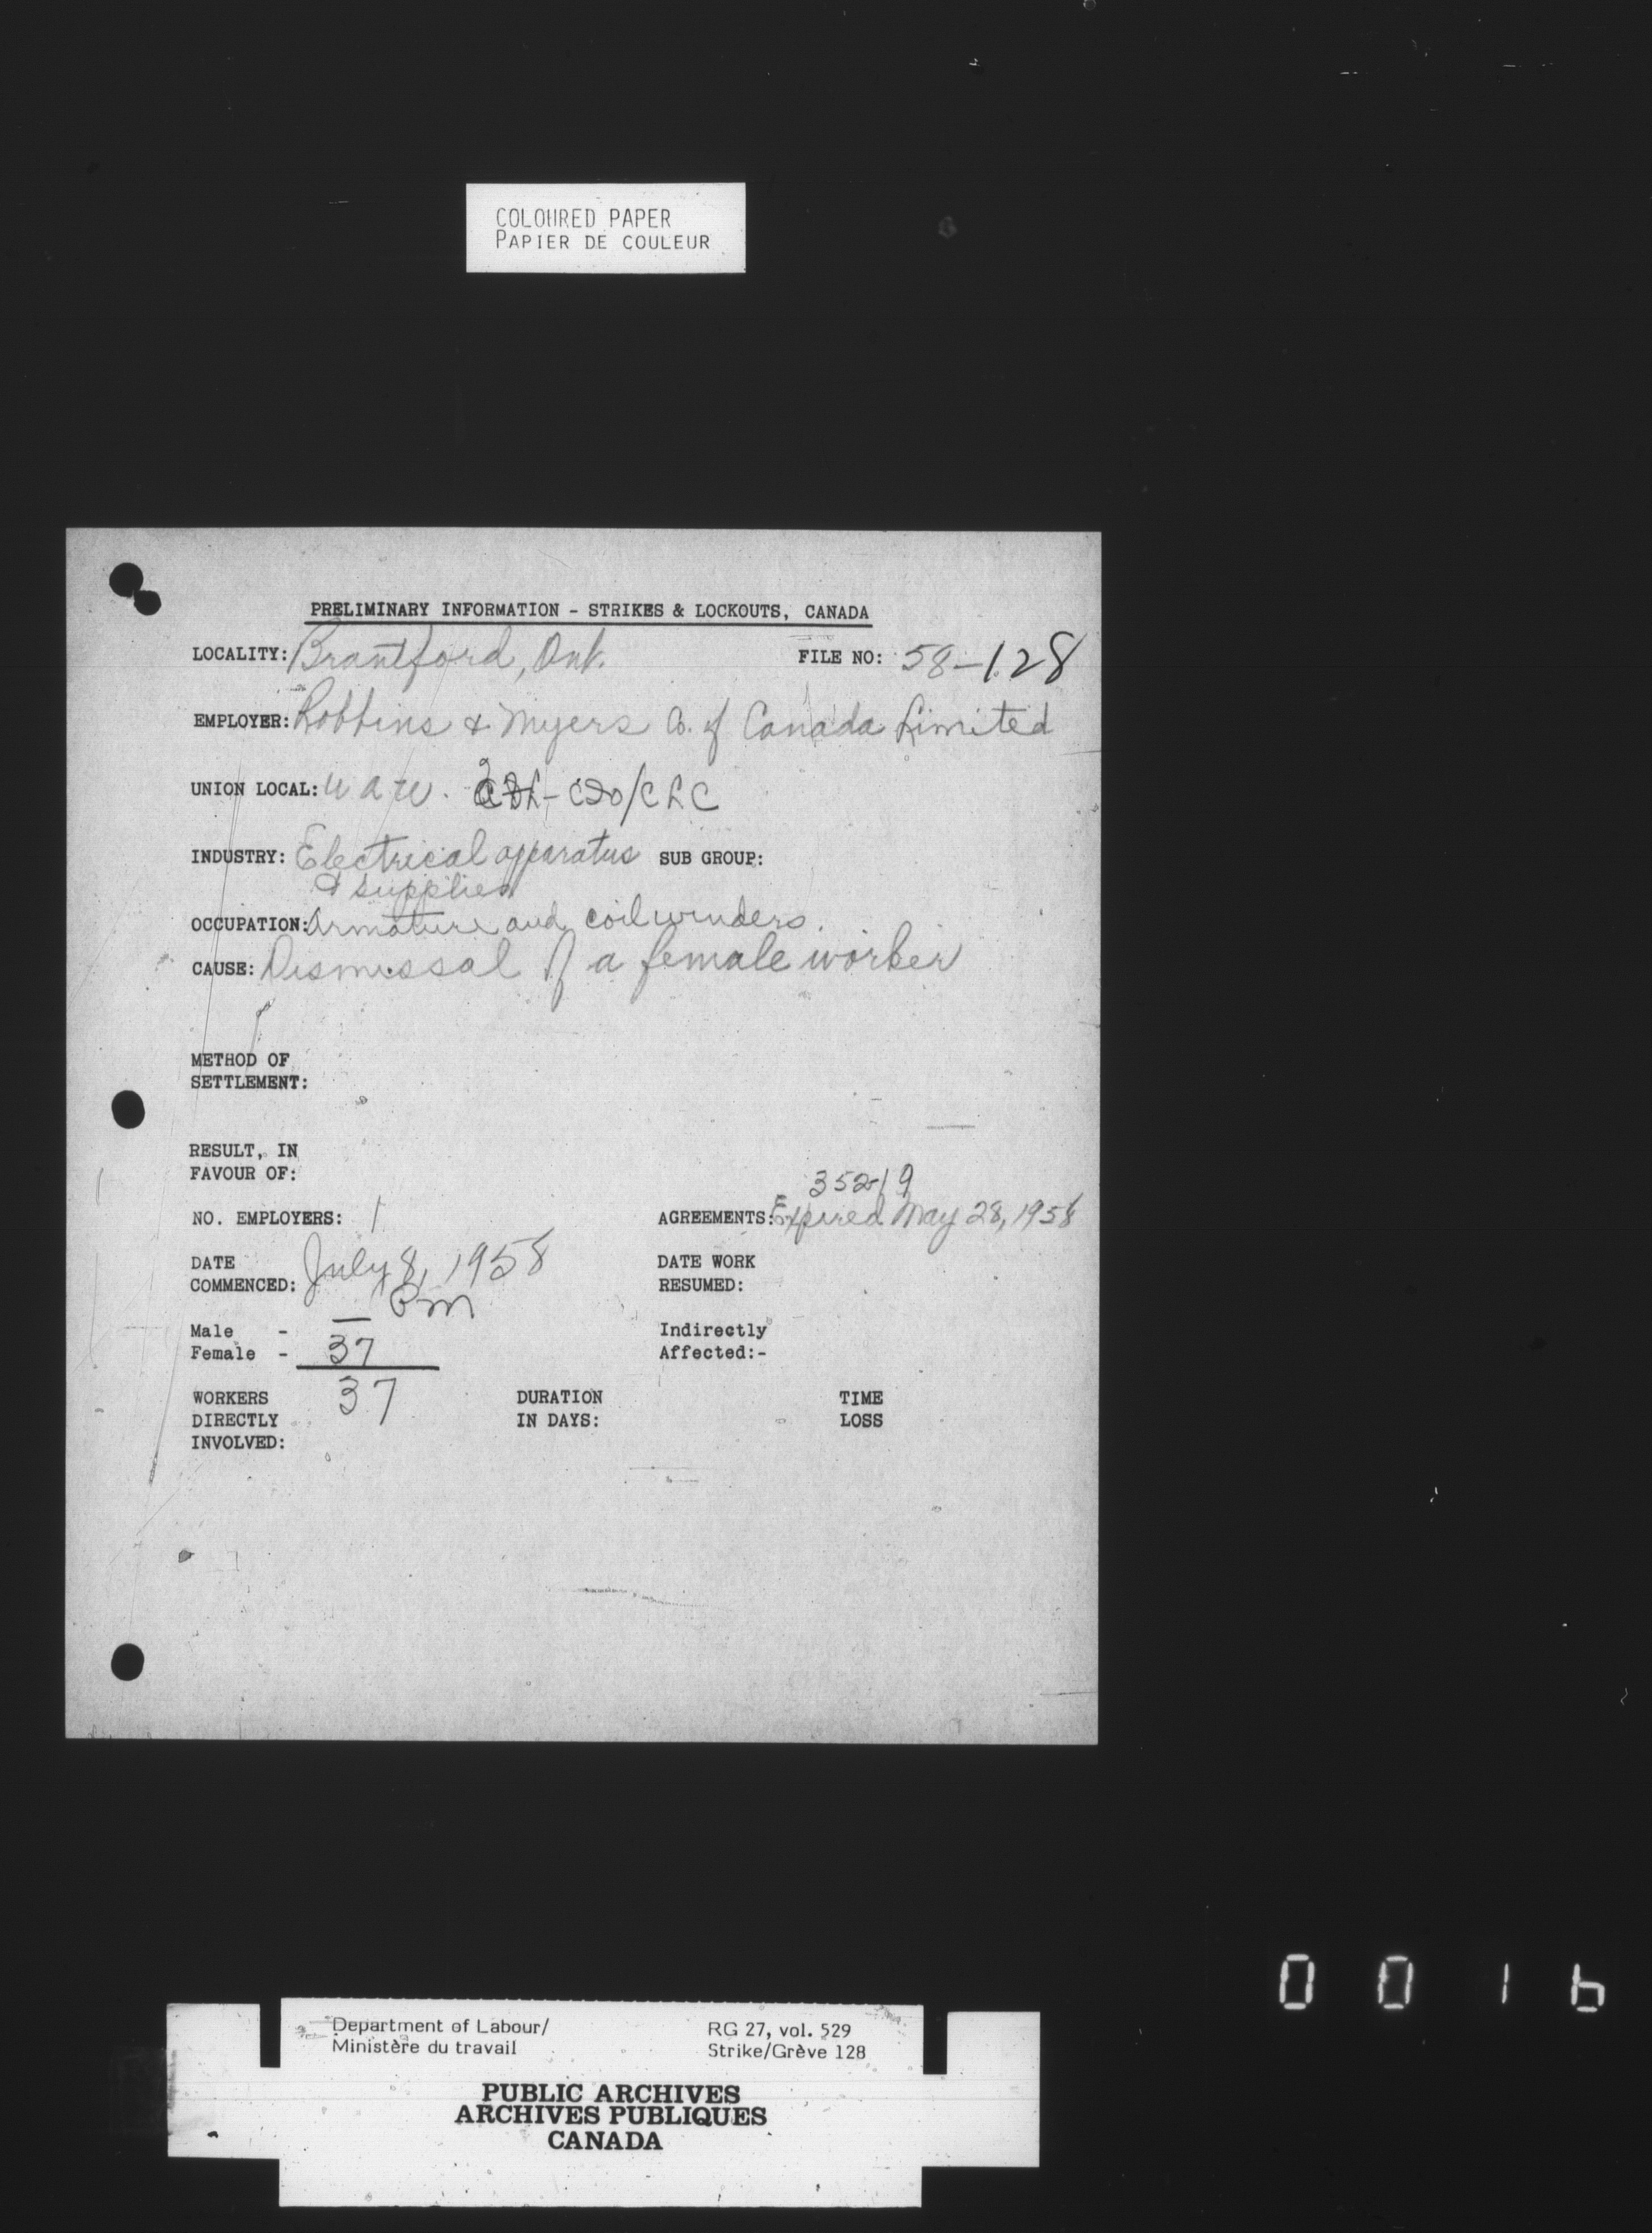 COLOURED PAPER
PAPIER DE COULEUR
PRELIMINARY INFORMATION - STRIKES & LOCKOUTS, CANADA
LOCALITY: Brantford, Ont. FILE NO: 58-128
EMPLOYER: Robbins & Myers Co. of Canada Limited
UNION LOCAL: U A W. CIO/CLC
INDUSTRY: Electrical apparatus SUB GROUP:
& supplies
OCCUPATION: Armature and coil winders.
CAUSE: Dismissal of a female worker
METHOD OF
SETTLEMENT:
RESULT, IN
FAVOUR OF:
352-19
NO. EMPLOYERS: 1 AGREEMENTS: Expired May 28, 1958
DATE COMMENCED: July 8, 1958 DATE WORK RESUMED:
Pm
Male - — Indirectly
Female - 37 Affected:-
WORKERS 37 DURATION TIME
DIRECTLY IN DAYS: LOSS
INVOLVED:
0016
Department of Labour/ RG 27, vol. 529
Ministère du travail Strike/Grève 128
PUBLIC ARCHIVES
ARCHIVES PUBLIQUES
CANADA